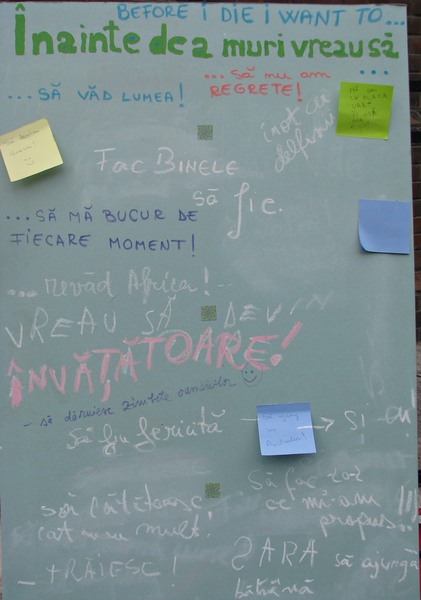 BEFORE I DIE I WANT TO...
Înainte de a muri vreau să
...
...SĂ NU AM
REGRETE!
...SĂ VĂD LUMEA!
înot cu
delfinii
FAC BINELE
să fie.
...SĂ MĂ BUCUR DE
FIECARE MOMENT!
...revăd Africa!
VREAU SĂ DEVIN
ÎNVĂȚĂTOARE!
- să dăruiesc zâmbete oamenilor
să fiu fericită
și eu!
Să fac tot
ce mi-am
propus..!!!
să călătoresc
cât mai mult!
- TRĂIESC!
SARA să ajungă
bătrână